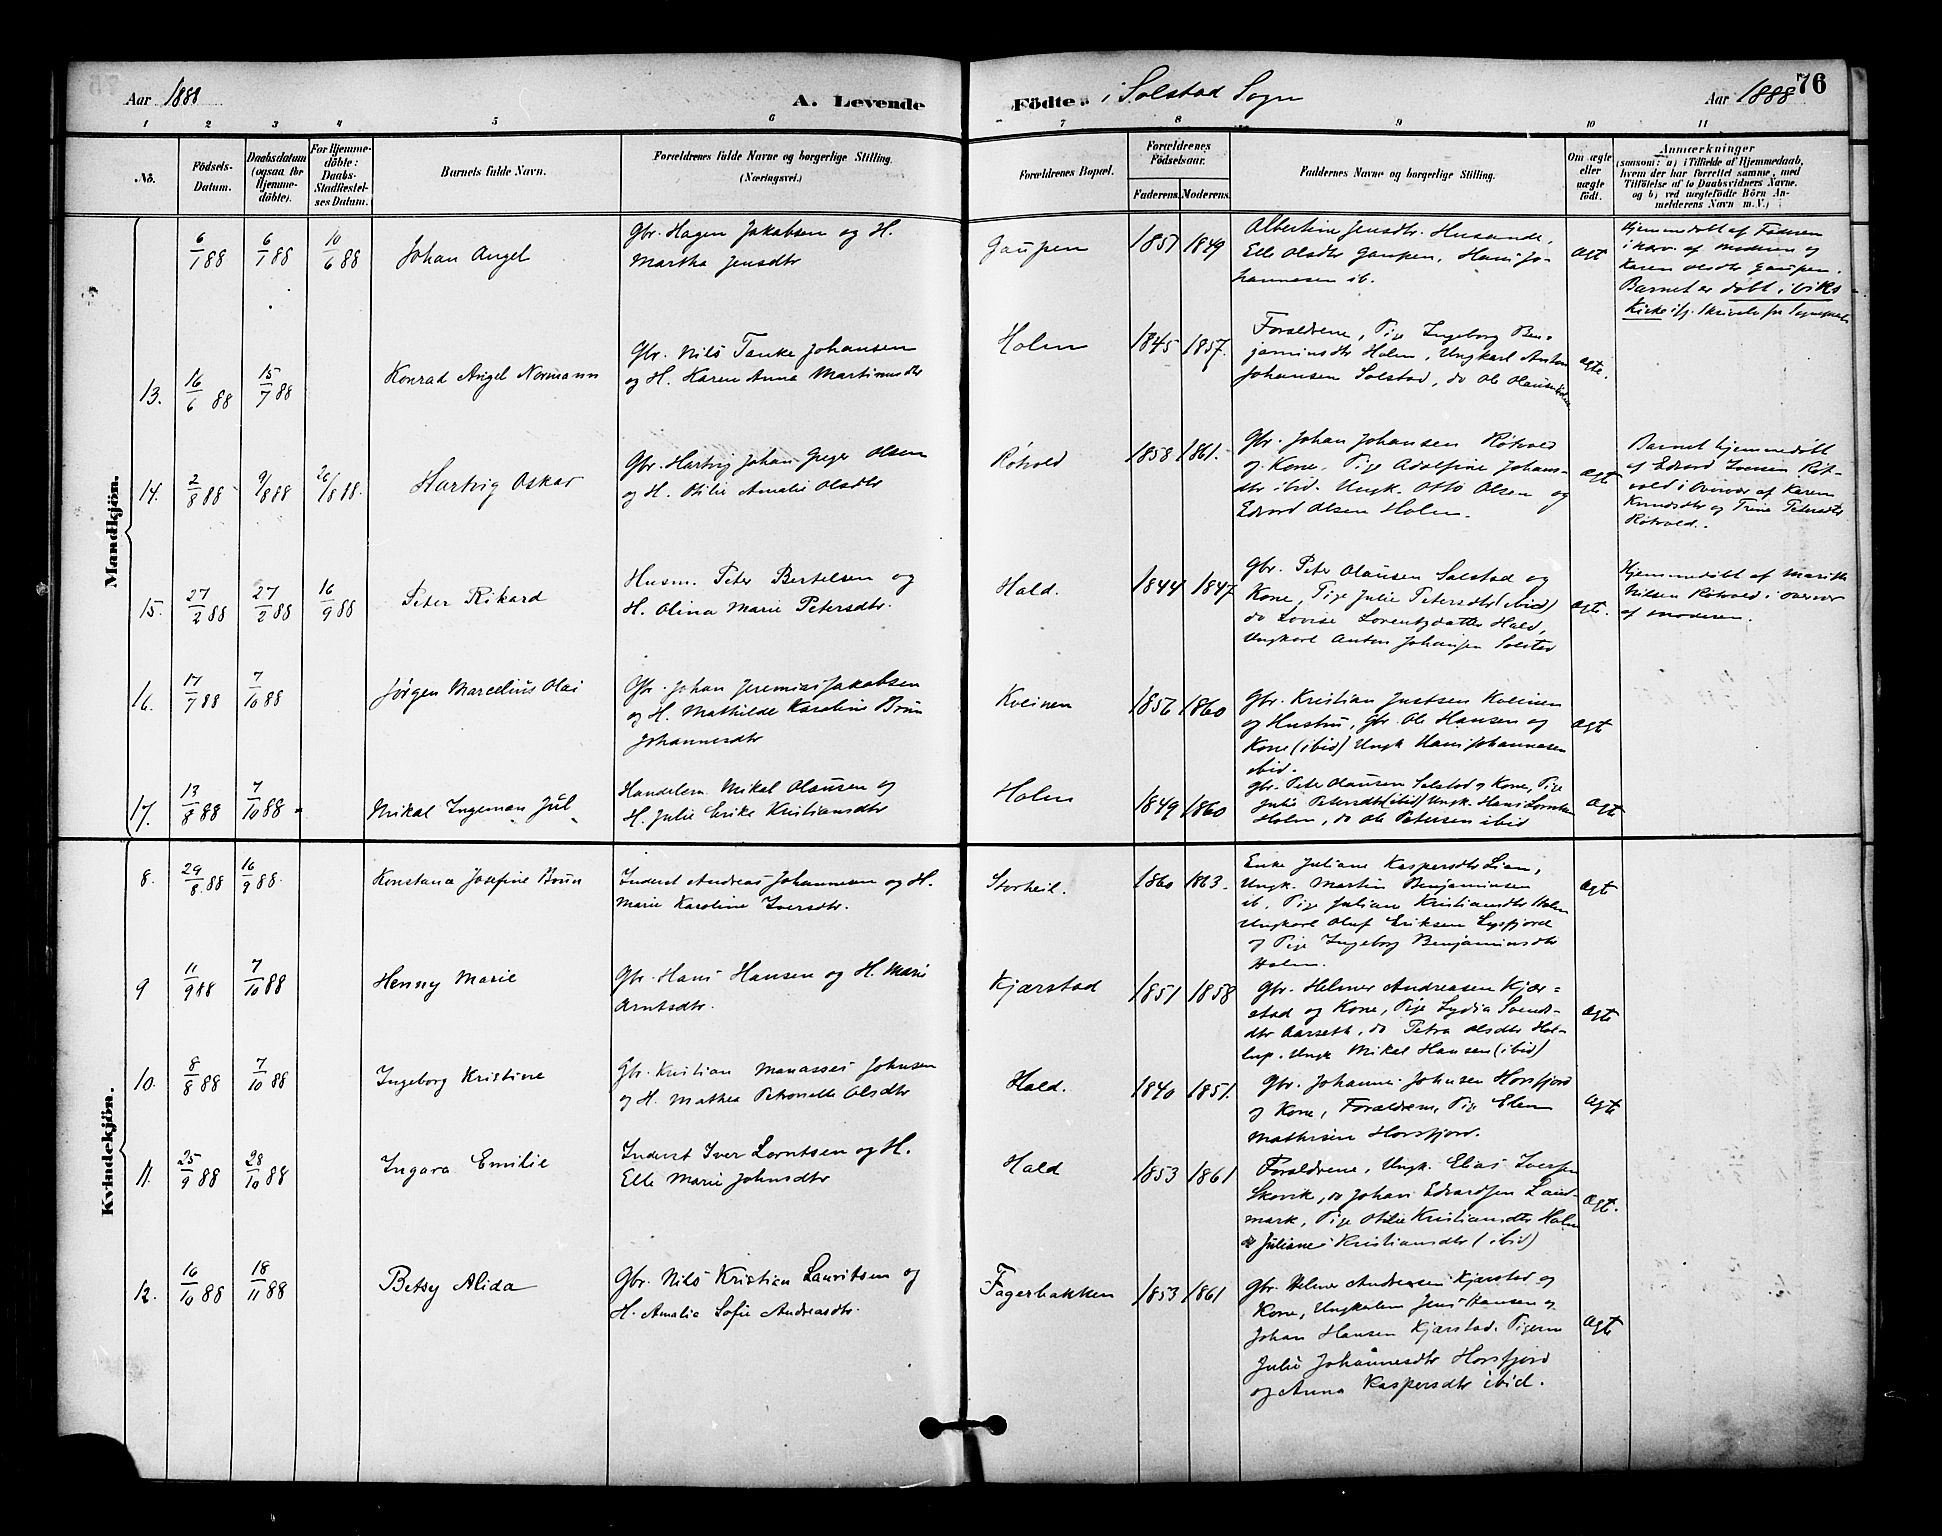 Aar 1888
A. Levende
Födte i Solstad Sogn
Aar 1888
76
1 2 3 4 5 6 7 8 9 10 11
No.
Födsels-
Datum.
Daabsdatum
(ogsaa for
Hjemme-
döbte).
For Hjemme-
döbte:
Daabs-
Stadfæstel-
ses Datum.
Barnets fulde Navn.
Forældrenes fulde Navne og borgerlige Stilling.
(Næringsvei.)
Forældrenes Bopæl.
Forældrenes
Födselsaar.
Faderens. Moderens.
Faddernes Navne og borgerlige Stilling.
Om ægte
eller
uægte
födt.
Anmærkninger
(saasom: a) i Tilfælde af Hjemmedaab,
hvem der har forrettet samme, med
Tilföielse af to Daabsvidners Navne,
og b) ved uægtefödte Börn An-
melderens Navn m. V.)
Mandkjön.
6/1 88 6/1 88 10/6 88
Johan Angel
Gbr. Hagen Jakobsen og H.
Martha Jensdtr
Gaupen
1857 1849
Albertine Jensdtr. Husande,
Elle Olsdtr Gaupen, Hans Jo-
hannesen ib.
Ægt
Hjemmedøbt af Faderen
i nærv. af Moderen og
Karen Olsdtr Gaupen.
Barnet er døbt i Viks
Kirke
13. 16/6 88 15/7 88
Konrad Angel Normann
Gbr. Nils Tanke Johansen
og H. Karen Anna Martinusdtr
Holm
1845 1857.
Forældrene, Pige Ingeborg Ben-
jaminsdtr Holm, Ungkarl Anton
Johansen Solstad, do Ole Olausen
ægte.
14. 2/8 88 9/8 88 26/8 88.
Hartvig Oskar
Gbr. Hartvig Johan Greger Olsen
og H. Otilie Amalie Olsdtr
Røtvold
1858 1861.
Gbr. Johan Johansen Røtvold
og Kone, Pige Adolfine Johans-
dtr ibid. Ungk. Otto Olsen og
Edvard Olsen Holm.
ægt
Barnet hjemmedøbt
af Edvard Iversen Røt-
vold i Overvær af Karen
Knudsdtr og Trine Petersdtr
Røtvold.
15. 27/2 88 27/2 88 16/9 88
Peter Rikard
Husm. Peter Bertelsen og
H. Olina Marie Petersdtr.
Hald.
1844 1847
Gbr. Peter Olausen Solstad og
Kone, Pige Julie Petersdtr (ibid)
do Lovise Lorentsdatter Hald,
Ungkarl Anton Johansen Solstad
ægt.
Hjemmedøbt af Marith
Nilsen Røtvold i overvær
af Moderen.
16. 17/7 88 7/10 88
Jørgen Marcelius Olai
Gbr. Johan Jeremias Jakobsen
og H. Mathilde Karoline Brun
Johannesdtr
Kveinen
1856 1860
Gbr. Kristian Justsen Kveinen
og Hustru, Gbr. Ole Hansen og
Kone (ibid) Ungk Hans Johannesen
ibid.
ægt
17. 13/8 88 7/10 88
Mikal Ingeman Jul
Handelsm. Mikal Olausen og
H. Julie Erike Kristiansdtr
Holm
1849 1860
Gbr. Peter Olausen Solstad og Kone, Pige
Julie Petersdtr (ibid) Ungk. Hans Lorntsen
Holm, do Ole Petersen ibid
ægt
Kvindekjön.
8. 29/8 88 16/9 88.
Konstana Josefine Brun
Inderst Andreas Johannesen og H.
Marie Karoline Iversdtr.
Storheil.
1860 1863.
Enke Juliane Kaspersdtr Lian,
Ungk. Martin Benjaminsen
ib. Pige Juliane Kristiansdtr Holm
Ungkarl Oluf Eriksen Lysfjord
og Pige Ingeborg Benjaminsdtr
Holm.
ægt
9 11/9 88 7/10 88
Henny Marie
Gbr. Hans Hansen og H. Marie
Arntsdtr.
Kjærstad
1851 1858
Gbr. Helmer Andreasen Kjær-
stad og Kone, Pige Lydia Svends-
dtr Aarseth, do Petra Olsdtr
Ungk Mikal Hansen (ibid)
ægte
10. 8/8 88 7/10 88
Ingeborg Kristine
Gbr. Kristian Manasses Johnsen
og H. Mathea Petronelle Olsdtr
Hald.
1840 1851.
Gbr. Johannes Johnsen Horsfjord
og Kone, Forældrene, Pige Elen
Mathisen Horsfjord.
ægte
11. 25/9 88 28/10 88
Ingara Emilie
Inderst Iver Lorntsen og H.
Elle Marie Johnsdtr
Hald
1853 1861
Forældrene, Ungk. Elias Iversen
Skovik, do Johan Edvardsen Land-
mark, Pige Otilie Kristiansdtr Holm
do Juliane Kristiansdtr (ibid)
ægt.
12. 16/10 88 18/11 88
Betsy Alida
Gbr. Nils Kristian Lauritsen og
H. Amalia Sofie Andreasdtr.
Fagerbakken
1853 1861
Gbr. Helmer Andreasen Kjærstad og
Kone, Ungkarlene Jens Hansen og
Johan Hansen Kjærstad. Pigerne
Julie Johannesdtr Horsfjord
og Anna Kaspersdtr ibid.
ægte